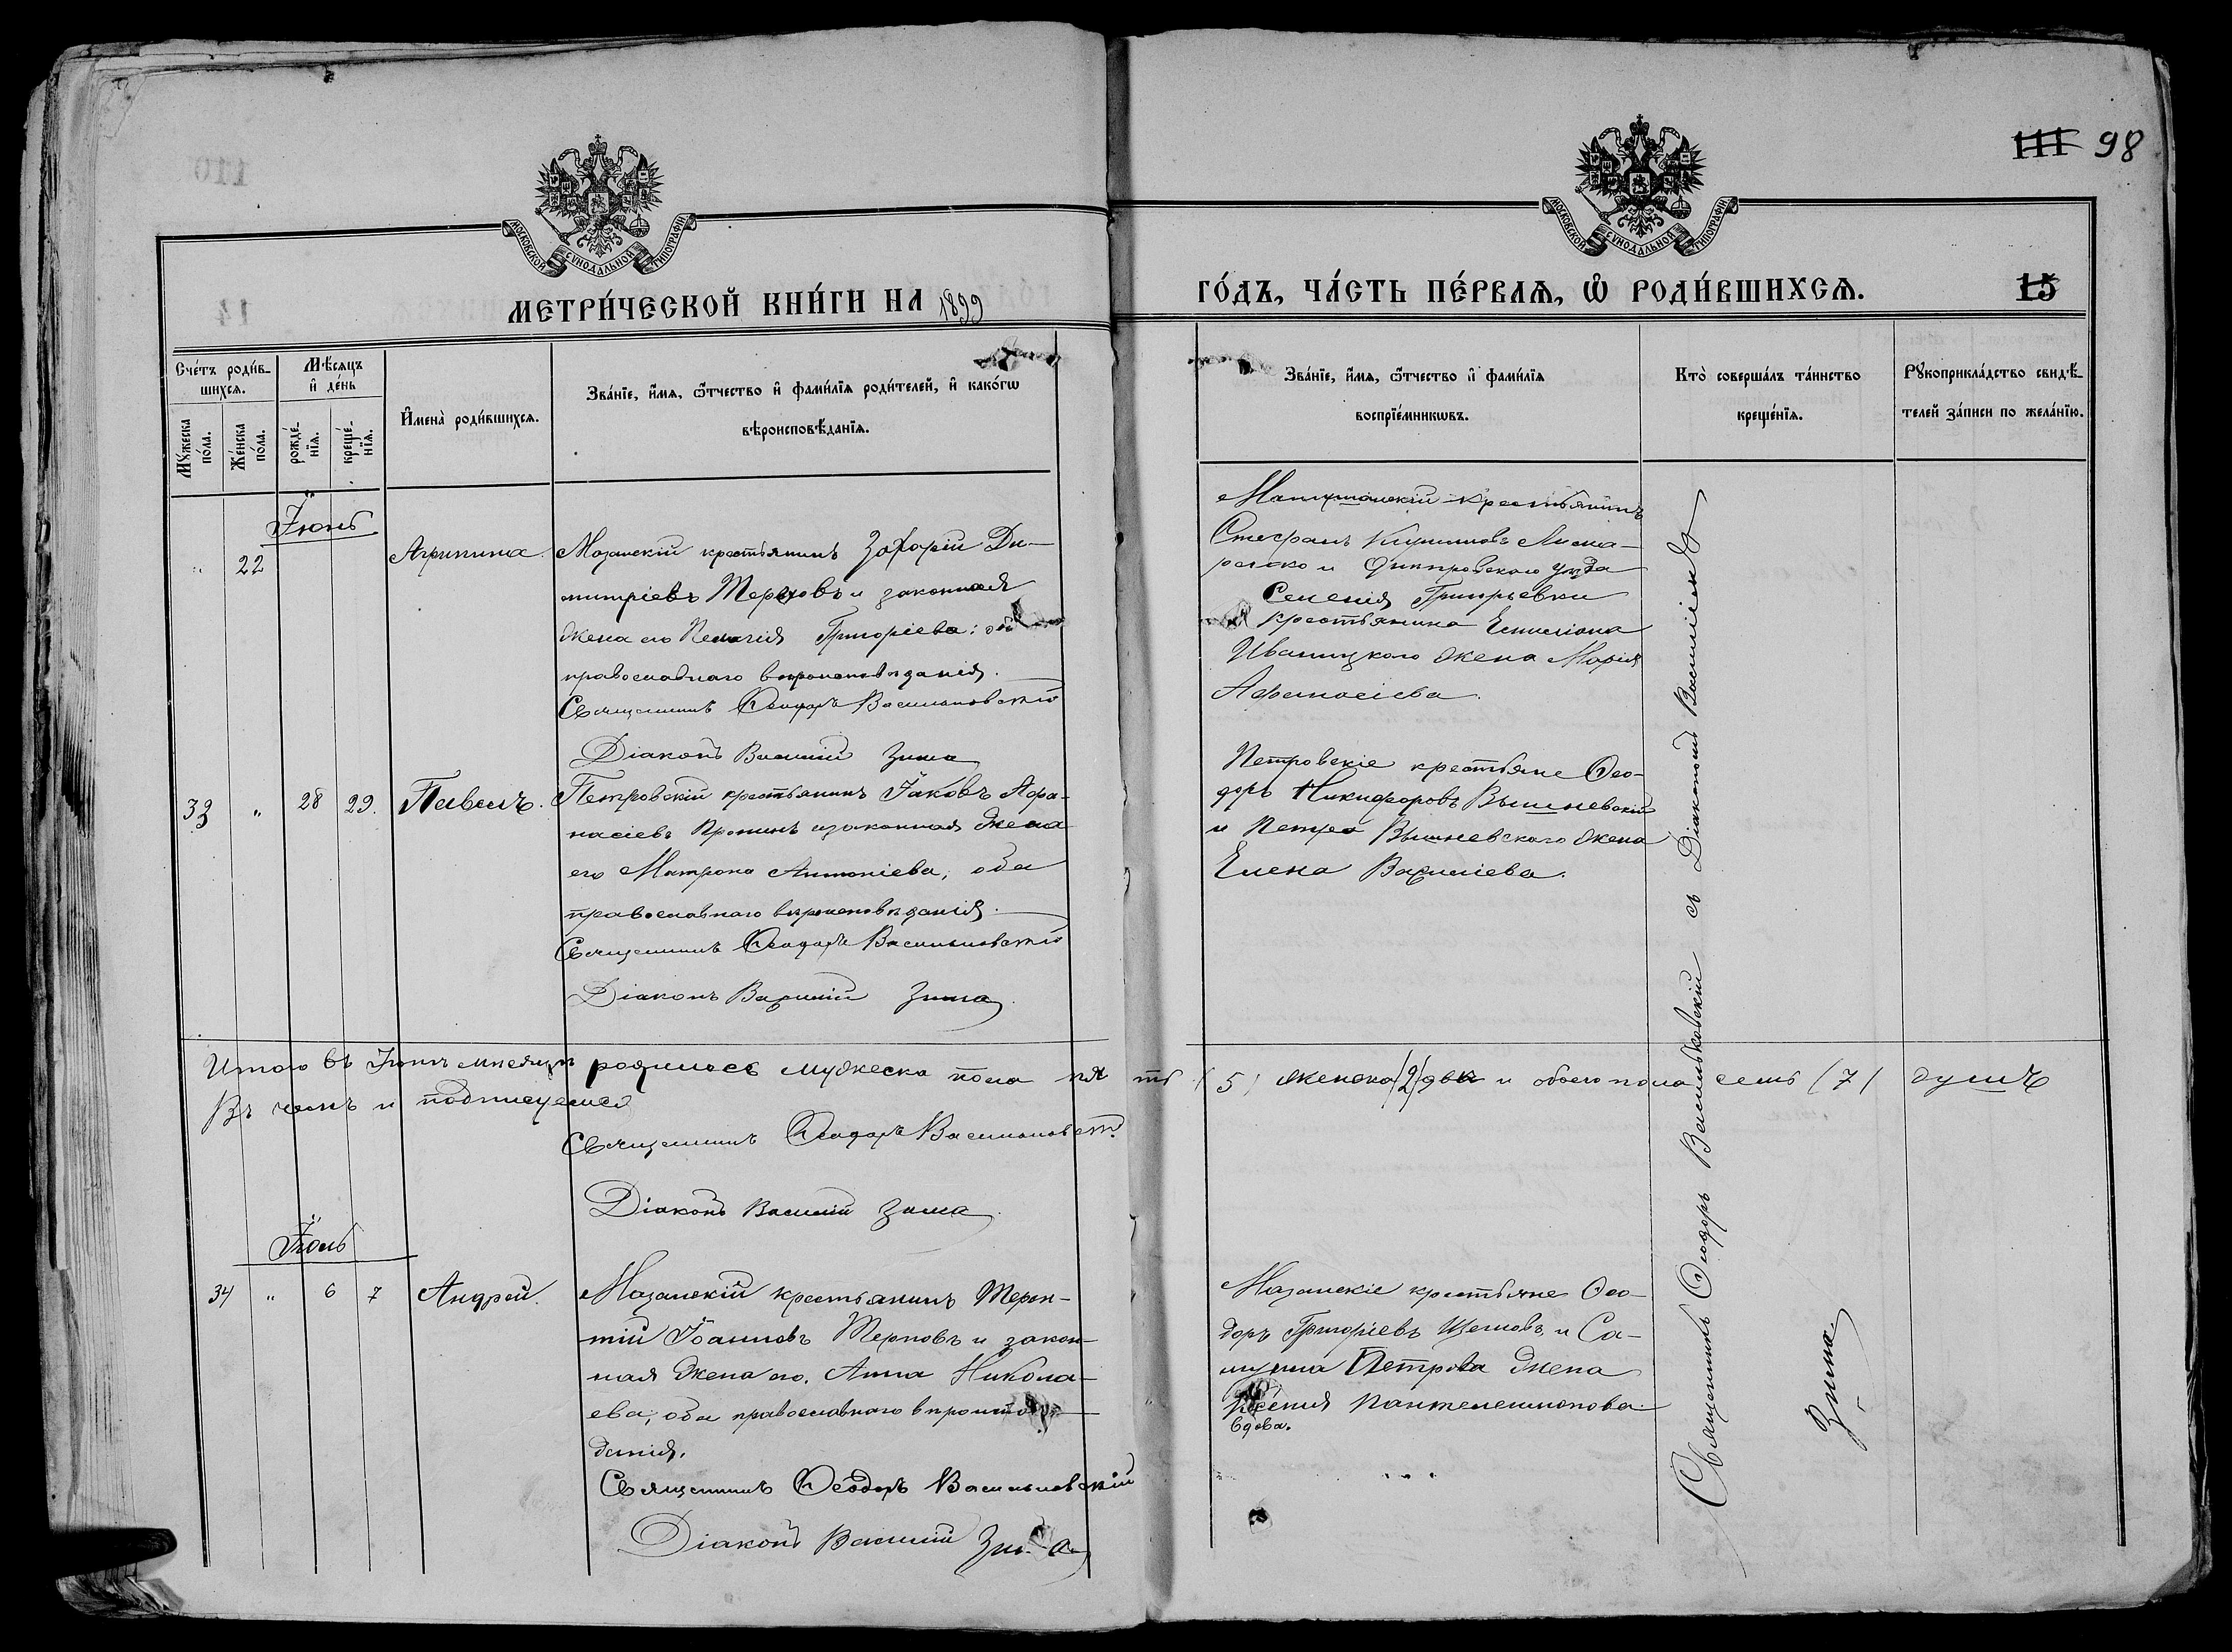 111 98
МОСКОВСКОЙ СѴНОДАЛЬНОЙ ТИПОГРАФІИ
МОСКОВСКОЙ СѴНОДАЛЬНОЙ ТИПОГРАФІИ
МЕТРИ́ЧЕСКОЙ КНИ́ГИ НА 1899
ГО́ДЪ, ЧА́СТЬ ПЕ́РВАѦ, Ѡ РОДИ́ВШИХСѦ.
15
Сче́тъ роди́в-
шихсѧ.
Мѣ́сѧцъ
и҆ де́нь
Му́жеска
по́ла.
Же́нска
по́ла.
рожде́-
нїѧ.
креще́-
нїѧ.
И҆мена̀ роди́вшихсѧ.
Зва́нїе, и҆́мѧ, ѻ҆́тчество и҆ фами́лїѧ роди́телей, и҆ како́гѡ
вѣроисповѣ́данїѧ.
Зва́нїе, и҆́мѧ, ѻ҆́тчество и҆ фами́лїѧ
воспрїе́мникѡвъ.
Кто̀ соверша́лъ та́инство
креще́нїѧ.
Рꙋкоприкла́дство свидѣ́-
телей за́писи по жела́нїю.
Іюнь
" 22
Агрипина.
Мазанскій крестьянинъ Захарій Ди-
митріевъ Терновъ и законная
жена его Пелагія Григоріева: об
православнаго вѣроисповѣданія.
Священникъ Ѳеодоръ Васильковскій
Діаконъ Василій Зима
крестьянинъ
Стефанъ
и Днѣпровскаго уѣзда
Селенія Григорьевки
крестьянина Емиліана
Иваницкаго жена Марія
Афанасіева.
33 " 28 29. Павелъ.
Петровскій крестьянинъ Іаковъ Афа-
насіевъ Пронинъ и законная жена
его Матрона Антоніева, оба
православнаго вѣроисповѣданія.
Священникъ Ѳеодоръ Васильковскій
Діаконъ Василій Зима
Петровскіе крестьяне Ѳео-
доръ Никифоровъ Вышневскій
и Петра Вышневскаго жена
Елена Василіева.
Итого въ Іюнѣ мѣсяцѣ родилось мужеска пола пять (5) женска (2) двѣ и обоего пола семь (7) душъ
Въ чемъ и подписуемся
Священникъ Ѳеодоръ Васильковскій
Діаконъ Василій Зима
Іюль
34 " 6 7 Андрей.
Мазанскій крестьянинъ Терен-
тій Іоанновъ Терновъ и закон-
ная жена его, Анна Никола-
ева, оба православнаго вѣроиспов
данія.
Священникъ Ѳеодоръ Васильковскій
Діаконъ Василій Зима
Мазанскіе крестьяне Ѳео-
доръ Григоріевъ Щегловъ, и Са-
муила Петрова жена
Ксенія Пантелеимонова.
вдова.
Священникъ Ѳеодоръ Васильковскій съ Діакономъ Василіемъ
Зима